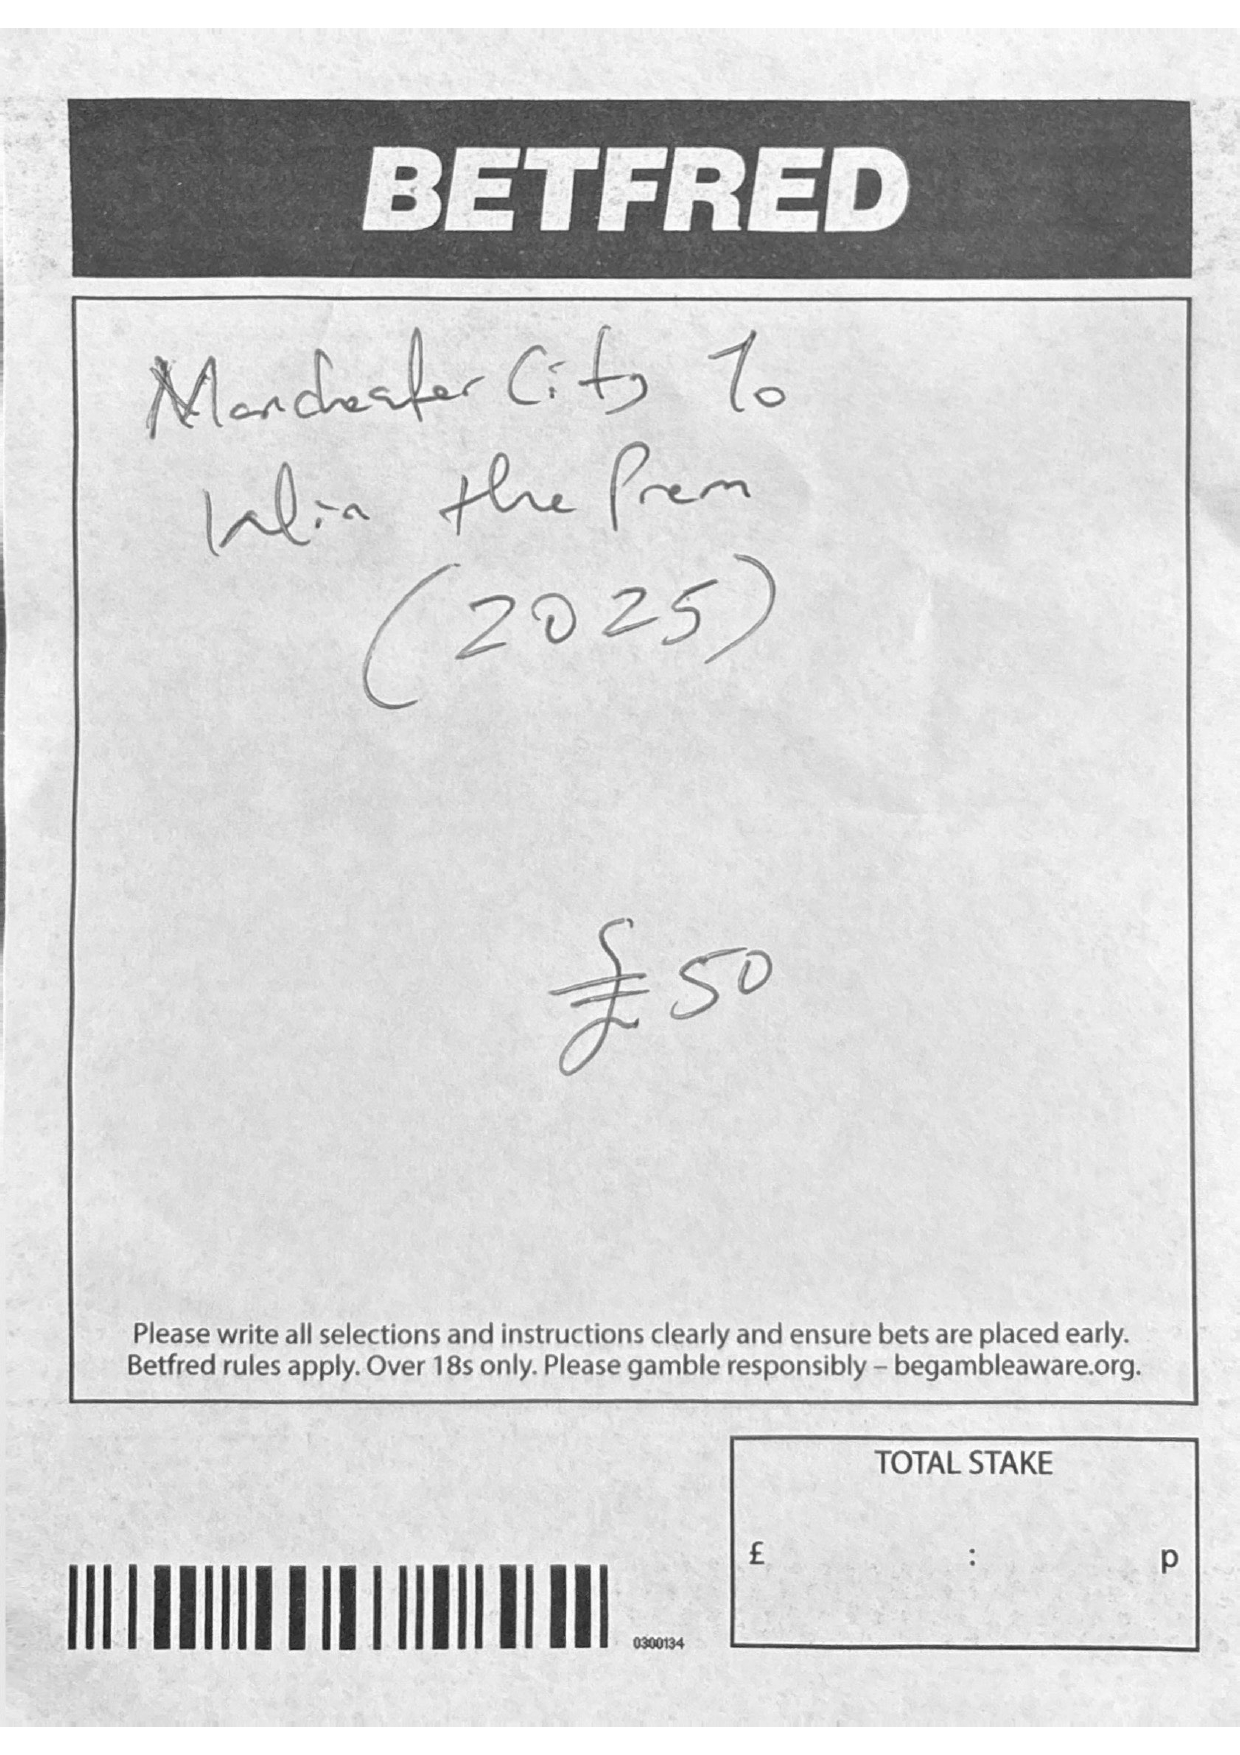 BETFRED
Manchester City To
Win the Prem
(2025)
£50
Please write all selections and instructions clearly and ensure bets are placed early.
Betfred rules apply. Over 18s only. Please gamble responsibly – begambleaware.org.
TOTAL STAKE
£ : p
0300134